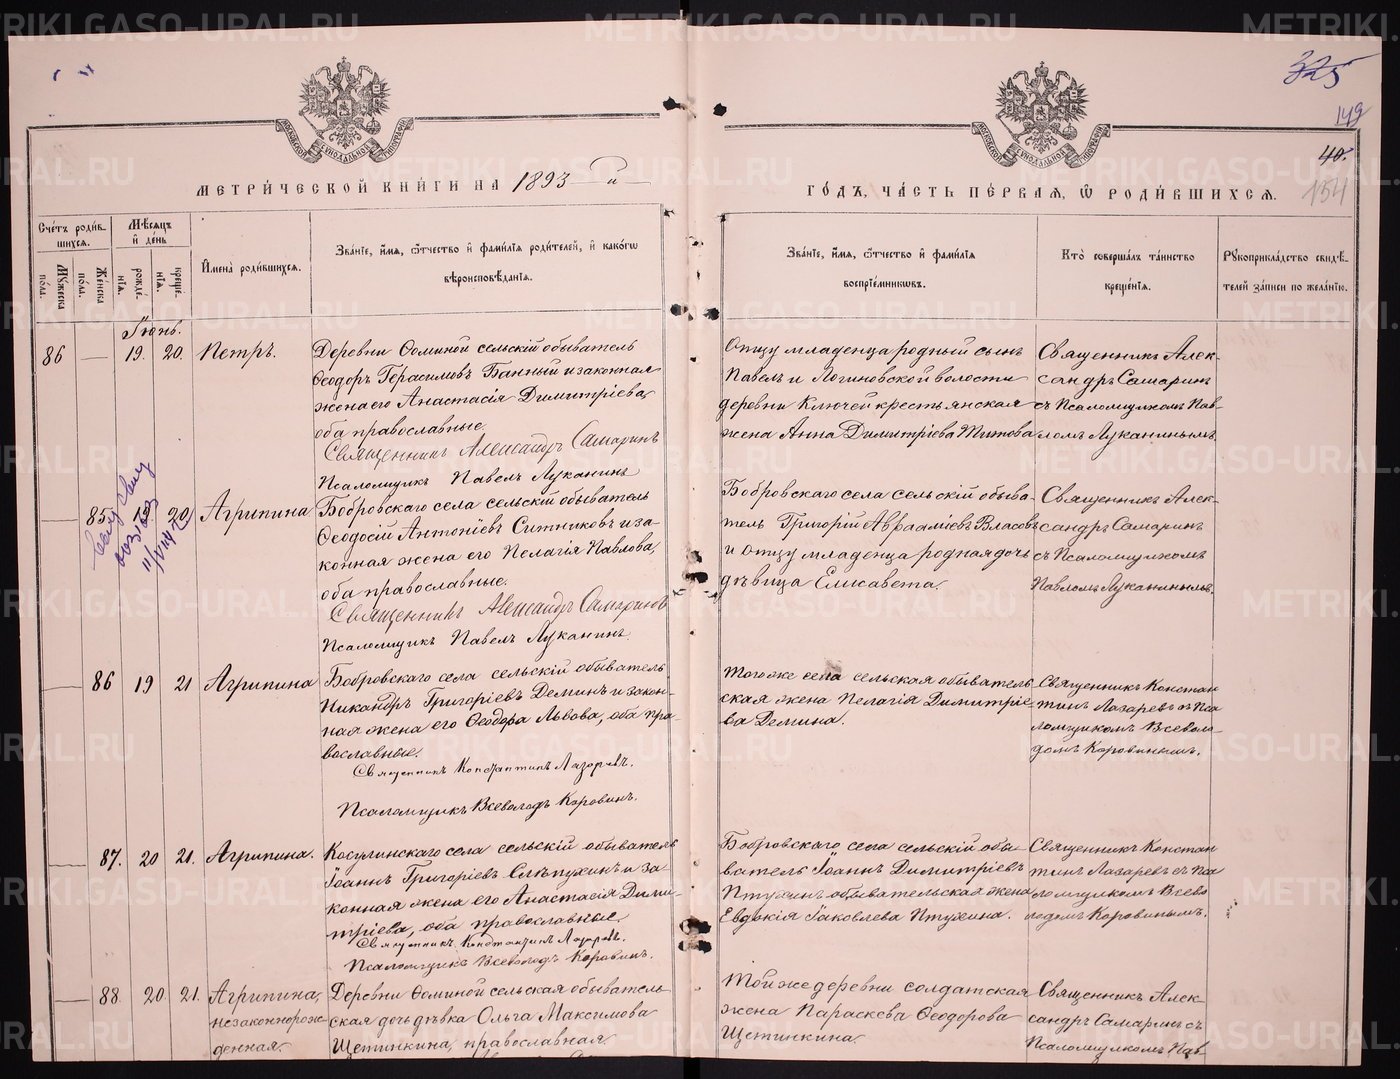 325
149
40.
154
МОСКОВСКОЙ СѴНОДАЛЬНОЙ ТИПОГРАФІИ
МОСКОВСКОЙ СѴНОДАЛЬНОЙ ТИПОГРАФІИ
МЕТРИ́ЧЕСКОЙ КНИ́ГИ НА 1893 й
ГО́ДЪ, ЧА́СТЬ ПЕ́РВАЯ, Ѡ РОДИ́ВШИХСЯ.
Сче́тъ роди́в-
шихся.
Мꙋжеска по́ла.
Женска по́ла.
Мѣ́сяцъ
и́ де́нь
рожде́-
нїя.
креще́-
нїя.
И́мена̀ роди́вшихся.
Зва́нїе, и́мя, ѻ҆́тчество и҆ фами́лїя роди́телей, и҆ како́гѡ
вѣроисповѣ́данїя.
Зва́нїе, и́мя, ѻ҆́тчество и҆ фами́лїя
воспрїе́мниковъ.
Кто̀ соверша́лъ та́инство
креще́нїя.
Рꙋкоприкла́дство свидѣ́-
телей за́писи по жела́нїю.
Іюнь.
86 — 19. 20. Петръ.
Деревни Ѳоминой сельскій обыватель
Ѳеодоръ Герасимовъ Банный и законная
жена его Анастасія Димитріева,
оба православные.
Священникъ Александръ Самаринъ
Псаломщикъ Павелъ Луканинъ
Отцу младенца родный сынъ
Павелъ и Логиновской волости
деревни Ключей крестьянская
жена Анна Димитріева Титова
Священникъ Алек-
сандръ Самаринъ
съ Псаломщикомъ Пав-
ломъ Луканинымъ
— 85. 20. Агрипина
Бобровскаго села сельскій обыватель
Ѳеодосій Антоніевъ Ситниковъ и за-
конная жена его Пелагія Павлова,
оба православные.
Священникъ Александръ Самаринъ
Псаломщикъ Павелъ Луканинъ.
Бобровскаго села сельскій обыва-
тель Григорій Авраамiевъ Власовъ
и отцу младенца родная дочь
дѣвица Елисавета.
Священникъ Алек-
сандръ Самаринъ
съ Псаломщикомъ
Павломъ Луканинымъ.
— 86 19 21 Агрипина
Бобровскаго села сельскій обыватель
Никандръ Григоріевъ Деминъ и закон-
ная жена его Ѳеодора Львова, оба пра-
вославные.
Священникъ Константинъ Лазаревъ.
Псаломщикъ Всеволодъ Коровинъ.
Того же села сельская обыватель
ская жена Пелагія Димитріе-
ва Демина.
Священникъ Констан
тинъ Лазаревъ съ Пса
ломщикомъ Всеволо-
домъ Коровинымъ.
— 87. 20 21. Агрипина.
Косулинскаго села сельскій обыватель
Іоаннъ Григоріевъ Слѣпухинъ и за-
конная жена его Анастасія Дими-
тріева, оба православные
Священникъ Константинъ Лазаревъ.
Псаломщикъ Всеволодъ Коровинъ.
Бобровскаго села сельскій обы-
ватель Іоаннъ Димитріевъ
Птухинъ обывательская жена
Евдокія Іаковлева Птухина.
Священникъ Констан
тинъ Лазаревъ съ Пса
ломщикомъ Всево
лодомъ Коровинымъ.
— 88. 20. 21. Агрипина,
незаконнорож-
денная.
Деревни Ѳоминой сельская обыватель-
ская дочь дѣвка Ольга Максимова
Щетинкина, православная
Той же деревни солдатская
жена Параскева Ѳеодорова
Щетинкина.
Священникъ Алек-
сандръ Самаринъ съ
Псаломщикомъ Пав-
METRIKI.GASO-URAL.RU